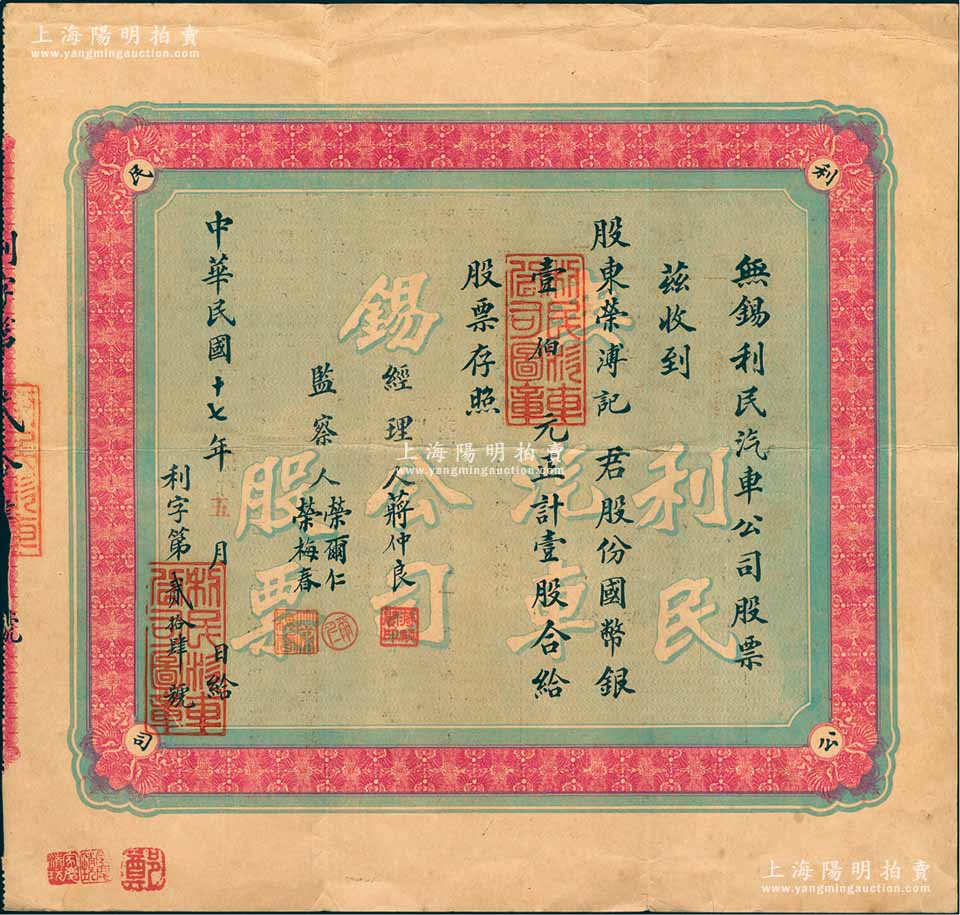 上海陽明拍賣
www.yangmingauction.com
利
民
公
司
無錫利民汽車公司股票
茲收到
股東榮溥記 君股份國幣銀
壹伯 元正計壹股合給
股票存照
經理人蔣仲良
監察人榮爾仁
榮梅春
中華民國十七年五月 日給
利字第貳拾肆號
無錫
利民
汽車
公司
股票
利民汽車公司圖章
利民汽車公司圖章
上海陽明拍賣
www.yangmingauction.com
鄭
上海陽明拍賣
www.yangmingauction.com